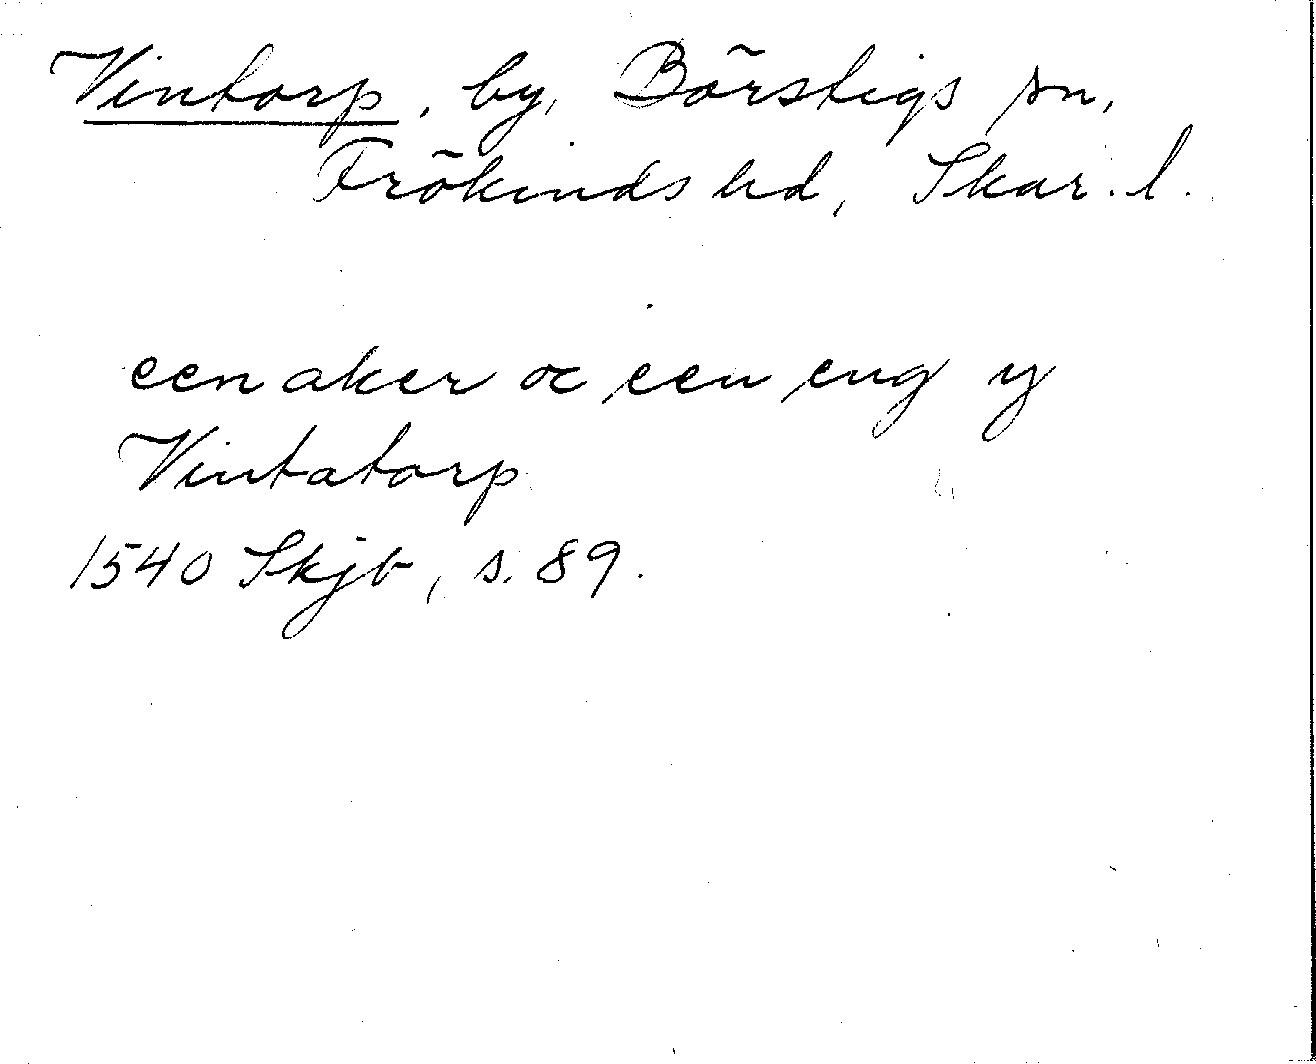 Vintorp, by, Börstigs sn,
Frökinds hd, Skar. l.
een aker oc een eng y
Vintatorp
1540 Skjb, s. 89.